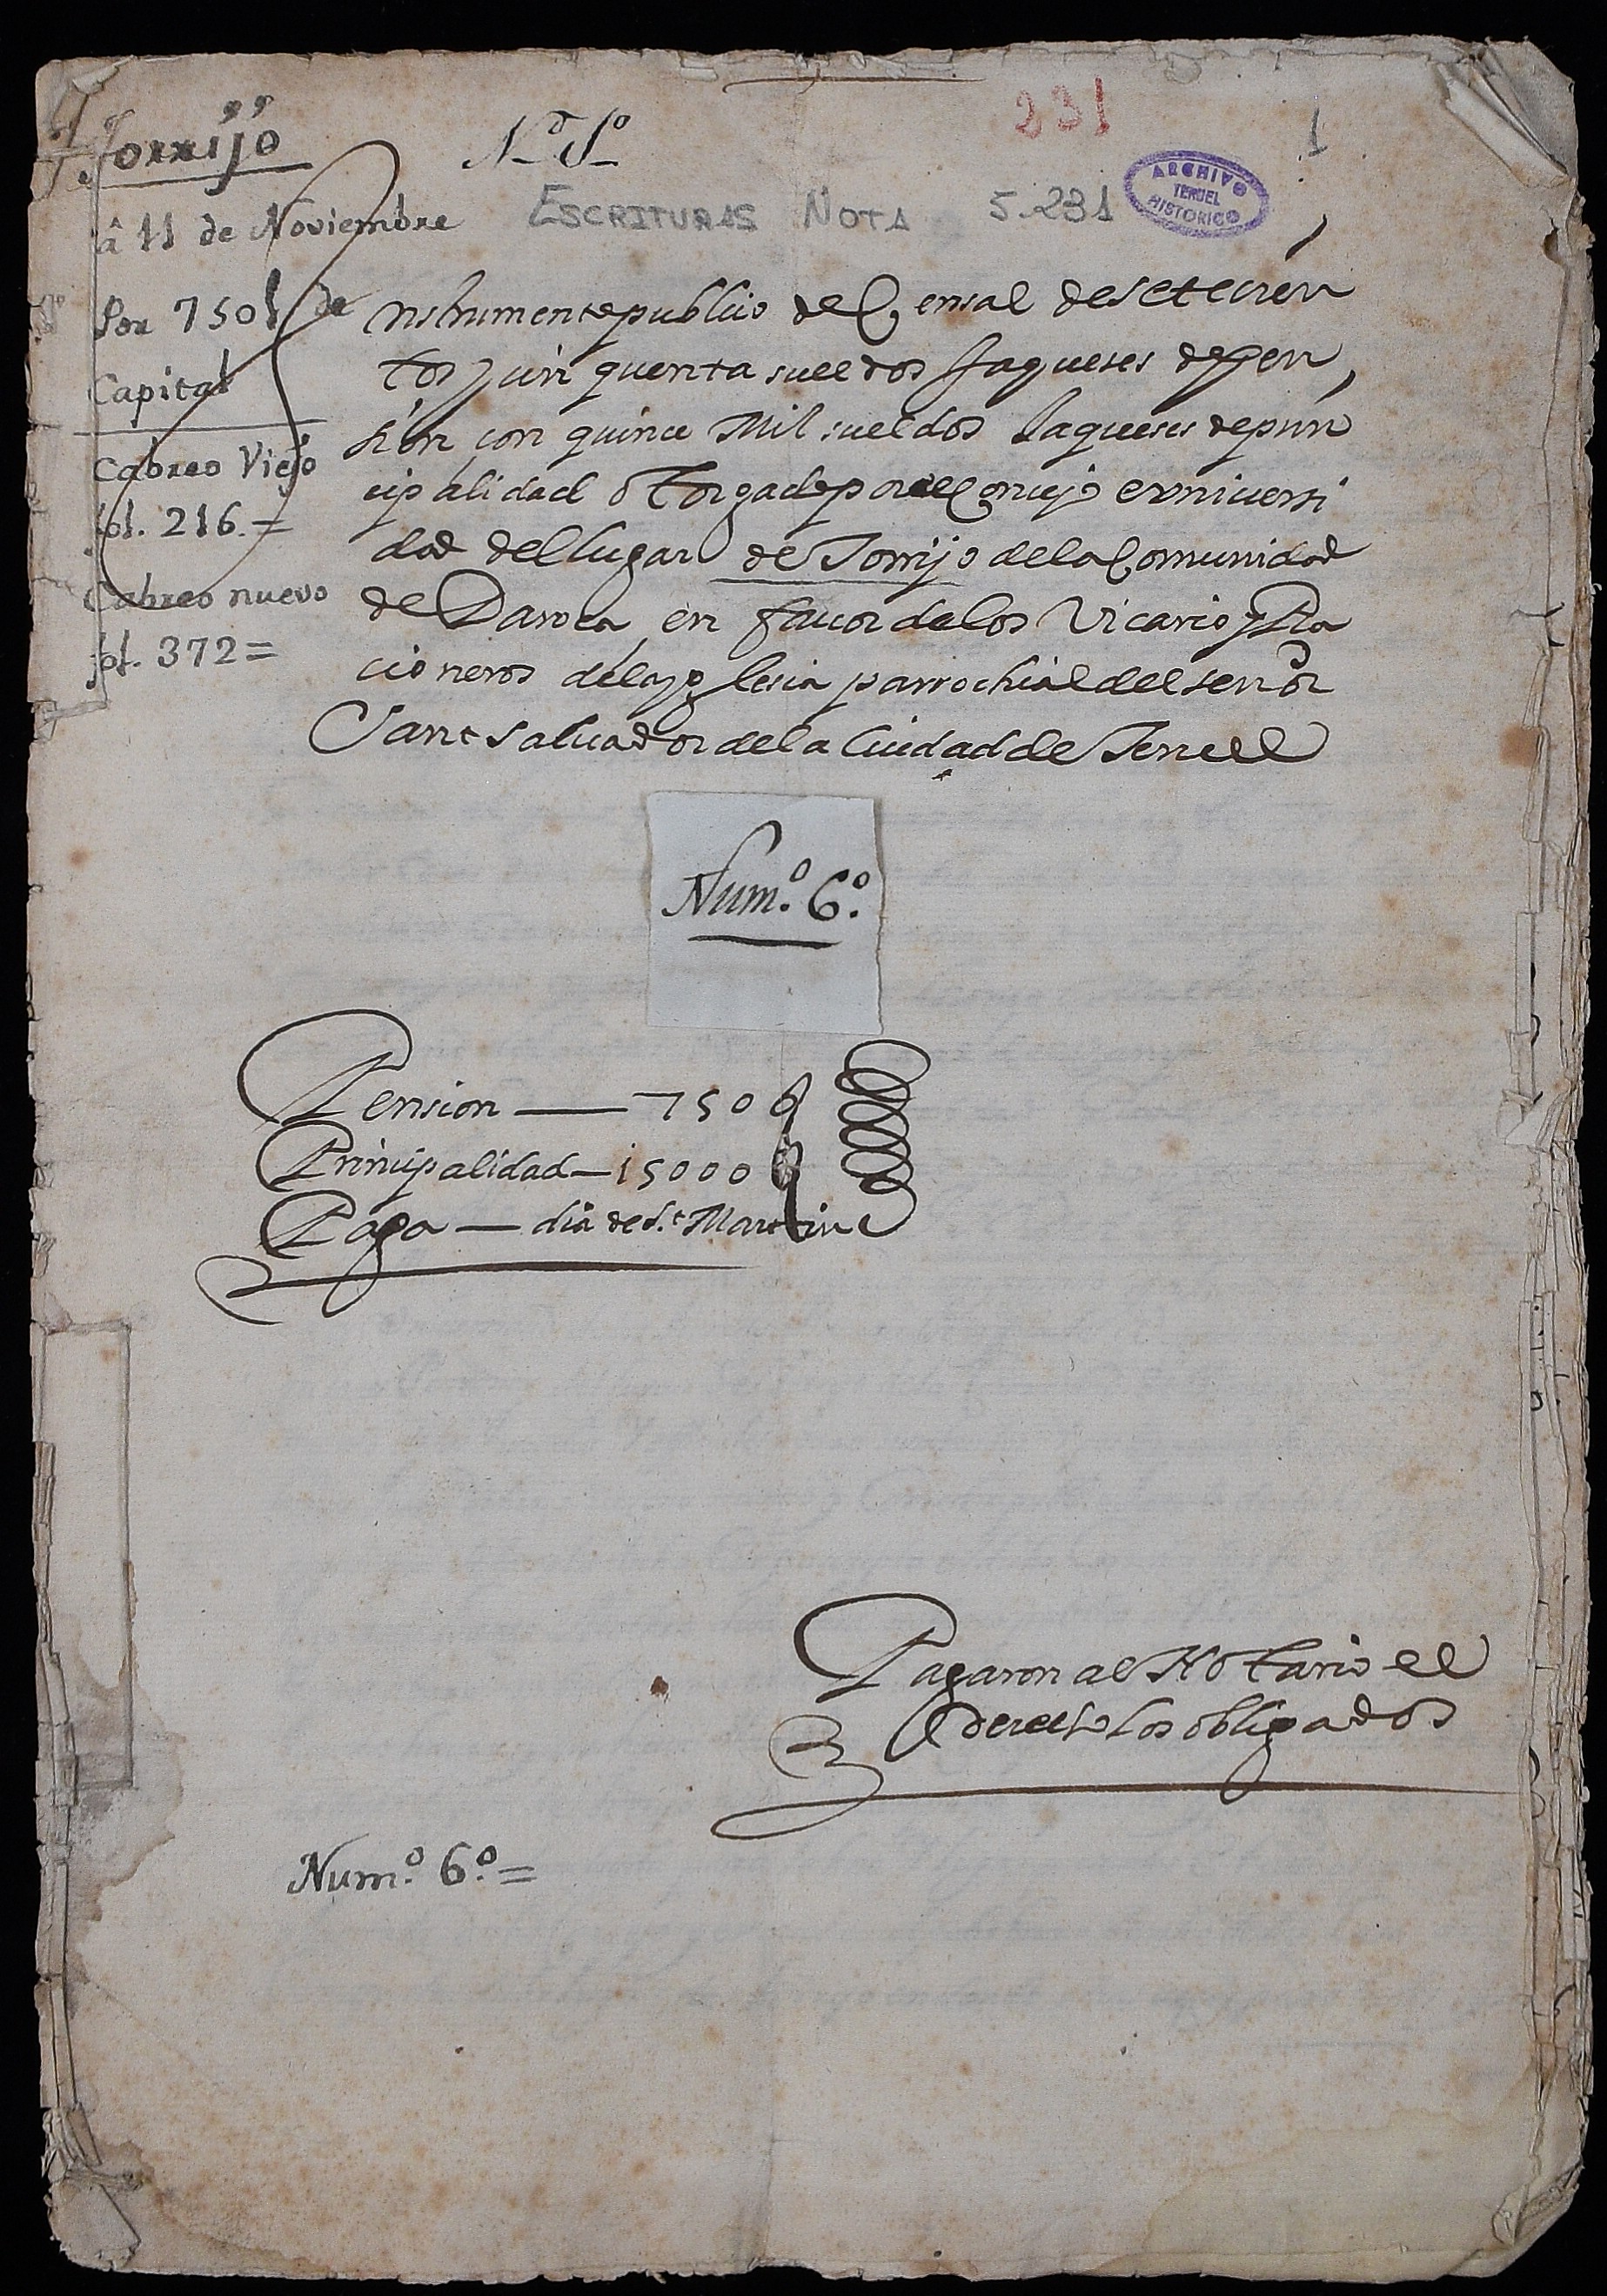 Torrijo
N.º S.º
231
1
â 11 de Noviembre
ESCRITURAS NOTA 5.231
ARCHIVO
TERUEL
HISTORICO
Por 750 de
Capital
Cabreo Viejo
fol. 216.=
Cabreo nuevo
fol. 372=
Instrumento publico de Censal de setecien
tos y cin quenta sueldos Jaqueses de pen
sion con quince Mil sueldos Jaqueses de prin
cipalidad otorgado por el Concejo e vniversi
dad del lugar de Torrijo de la Comunidad
de Daroca en fauor de los Vicario y Ra
cioneros de la yglesia parrochial del señor
Sant Saluador de la Ciudad de Teruel
Num.º 6.º
Pension — 750
Principalidad — 15000
Paga — dia de S.t Martin
Pagaron al Notario el
derecho los obligados
Num.º 6.º =